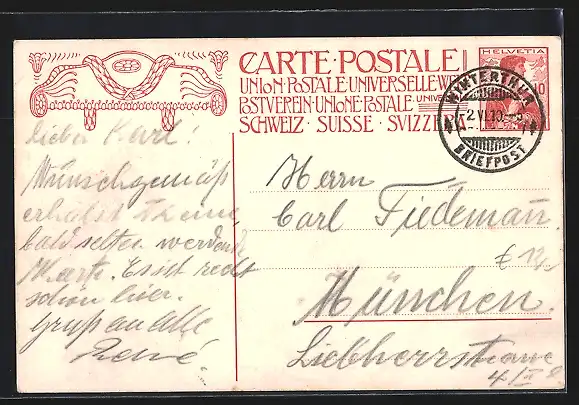 CARTE POSTALE
UNION·POSTALE·UNIVERSELLE·
POSTVEREIN·UNIONE·POSTALE·
SCHWEIZ·SUISSE·SVIZZ
HELVETIA
10
WINTERTHUR
BRIEFPOST
Lieber Karl!
Wunschgemäß
erhälst
bald selten werdende
Karte. Es ist recht
schön hier.
Gruß an alle
René.
Herrn
Carl Fiedemann
München.
Liebherrstrasse